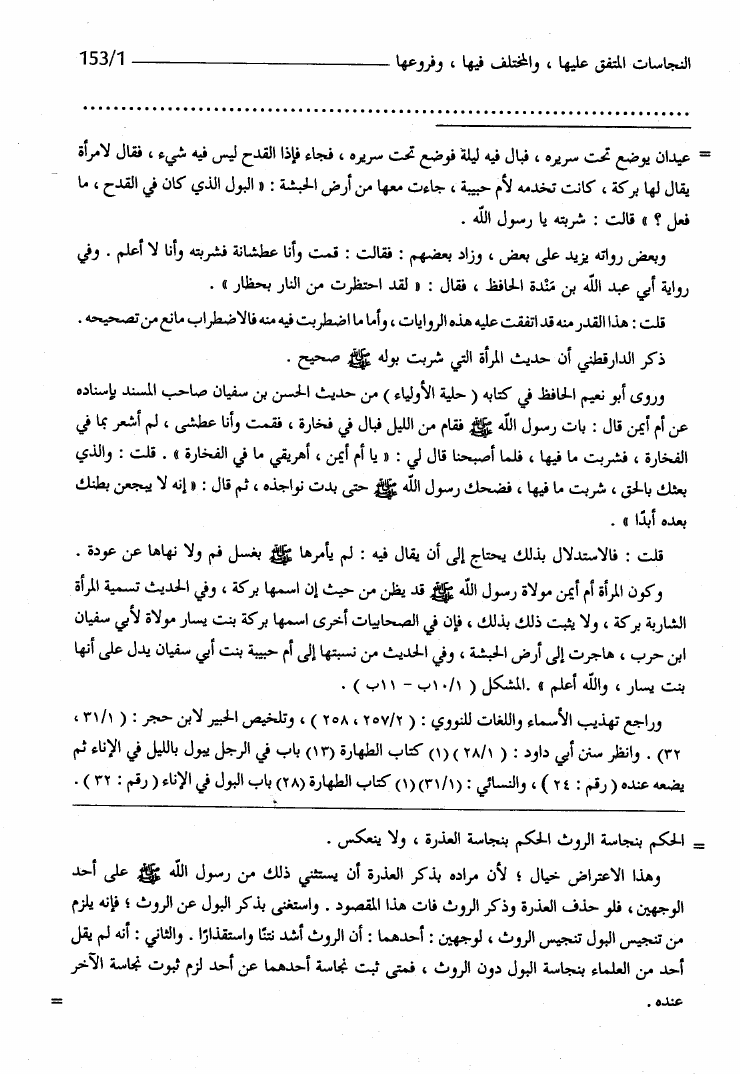 النجاسات المتفق عليها ، والمختلف فيها ، وفروعها ــــــــــــــــــــــــــــــ 153/1
= عيدان يوضع تحت سريره ، فبال فيه ليلة فوضع تحت سريره ، فجاء فإذا القدح ليس فيه شيء ، فقال لامرأة
يقال لها بركة ، كانت تخدمه لأم حبيبة ، جاءت معها من أرض الحبشة : « البول الذي كان في القدح ، ما
فعل ؟ » قالت : شربته يا رسول الله .
وبعض رواته يزيد على بعض ، وزاد بعضهم : فقالت : قمت وأنا عطشانة فشربته وأنا لا أعلم . وفي
رواية أبي عبد الله بن مَنْدة الحافظ ، فقال : « لقد احتظرت من النار بحظار » .
قلت : هذا القدر منه قد اتفقت عليه هذه الروايات ، وأما ما اضطربت فيه منه فالاضطراب مانع من تصحيحه .
ذكر الدارقطني أن حديث المرأة التي شربت بوله ﷺ صحيح .
وروى أبو نعيم الحافظ في كتابه ( حلية الأولياء ) من حديث الحسن بن سفيان صاحب المسند بإسناده
عن أم أيمن قال : بات رسول الله ﷺ فقام من الليل فبال في فخارة ، فقمت وأنا عطشى ، لم أشعر بما في
الفخارة ، فشربت ما فيها ، فلما أصبحنا قال لي : « يا أم أيمن ، أهريقي ما في الفخارة » . قلت : والذي
بعثك بالحق ، شربت ما فيها ، فضحك رسول الله ﷺ حتى بدت نواجذه ، ثم قال : « إنه لا ييجعن بطنك
بعده أبدًا » .
قلت : فالاستدلال بذلك يحتاج إلى أن يقال فيه : لم يأمرها ﷺ بغسل فم ولا نهاها عن عودة .
وكون المرأة أم أيمن مولاة رسول الله ﷺ قد يظن من حيث إن اسمها بركة ، وفي الحديث تسمية المرأة
الشاربة بركة ، ولا يثبت ذلك بذلك ، فإن في الصحابيات أخرى اسمها بركة بنت يسار مولاة لأبي سفيان
ابن حرب ، هاجرت إلى أرض الحبشة ، وفي الحديث من نسبتها إلى أم حبيبة بنت أبي سفيان يدل على أنها
بنت يسار ، والله أعلم » .المشكل ( ١٠/١ب - ١١ب ) .
وراجع تهذيب الأسماء واللغات للنووي : ( ٢٥٧/٢ ، ٢٥٨ ) ، وتلخيص الحبير لابن حجر : ( ٣١/١ ،
٣٢) . وانظر سنن أبي داود : ( ٢٨/١ ) (١) كتاب الطهارة (١٣) باب في الرجل يبول بالليل في الإناء ثم
يضعه عنده ( رقم : ٢٤ ) ، والنسائي : (٣١/١) (١) كتاب الطهارة (٢٨) باب البول في الإناء ( رقم : ٣٢ ) .
= الحكم بنجاسة الروث الحكم بنجاسة العذرة ، ولا ينعكس .
وهذا الاعتراض خيال ؛ لأن مراده بذكر العذرة أن يستثني ذلك من رسول الله ﷺ على أحد
الوجهين ، فلو حذف العذرة وذكر الروث فات هذا المقصود . واستغنى بذكر البول عن الروث ؛ فإنه يلزم
من تنجيس البول تنجيس الروث ، لوجهين : أحدهما : أن الروث أشد نتنًا واستقذارًا . والثاني : أنه لم يقل
أحد من العلماء بنجاسة البول دون الروث ، فمتى ثبت نجاسة أحدهما عن أحد لزم ثبوت نجاسة الآخر
عنده . =